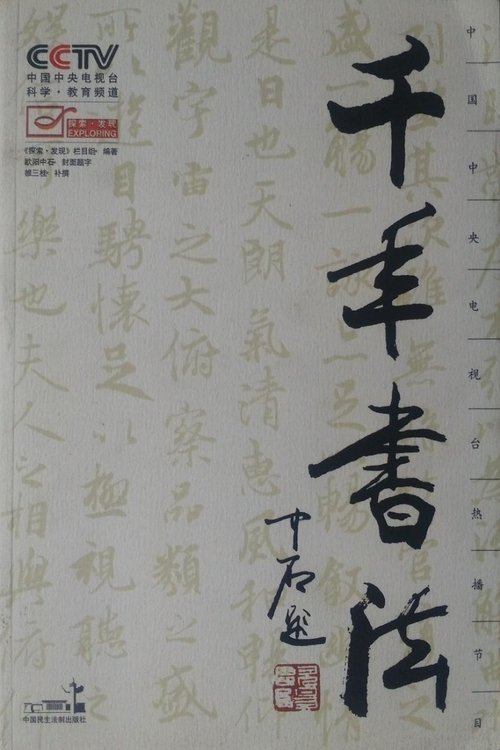 CCTV
中国中央电视台
科学·教育频道
探索·发现
EXPLORING
《探索·发现》栏目组·编著
欧阳中石·封面题字
三枝·补撰
千年书法
中石题
中国中央电视台热播节目
盛一觴一詠亦足暢叙
是日也天朗氣清惠風和暢
觀宇宙之大俯察品類之盛
所以遊目騁懷足以極視聽之
娛可樂也夫人之相與俯
中国民主法制出版社